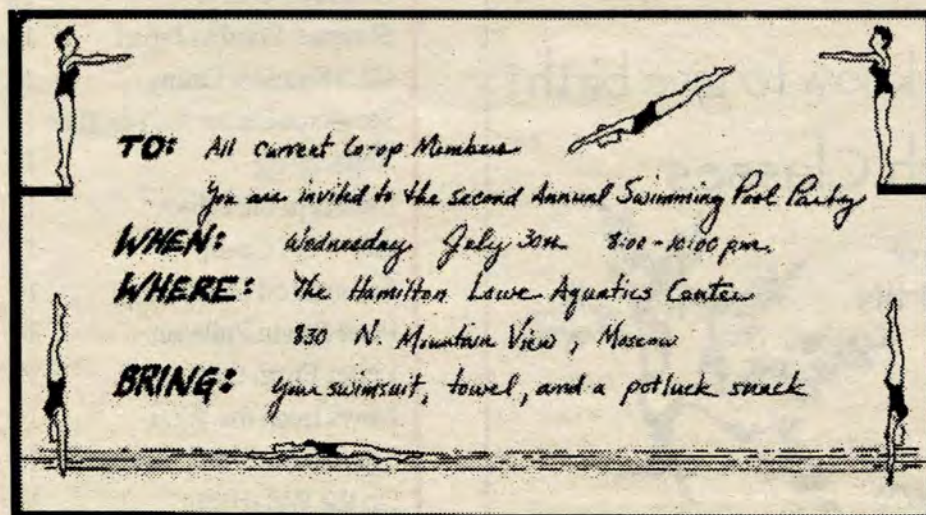 TO: All current Co-op Members
You are invited to the second Annual Swimming Pool Party
WHEN: Wednesday July 30th 8:00-10:00 pm.
WHERE: The Hamilton Lowe Aquatics Center
830 N. Mountain View, Moscow
BRING: your swimsuit, towel, and a potluck snack